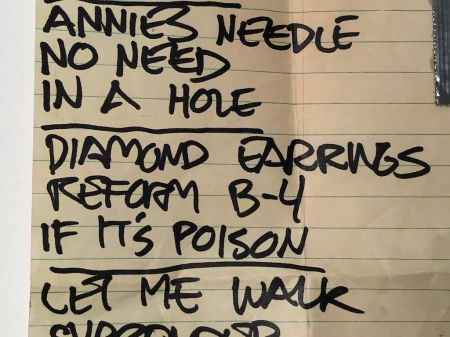 ANNIES NEEDLE
NO NEED
IN A HOLE
DIAMOND EARRINGS
REFORM B-4
IF IT'S POISON
LET ME WALK